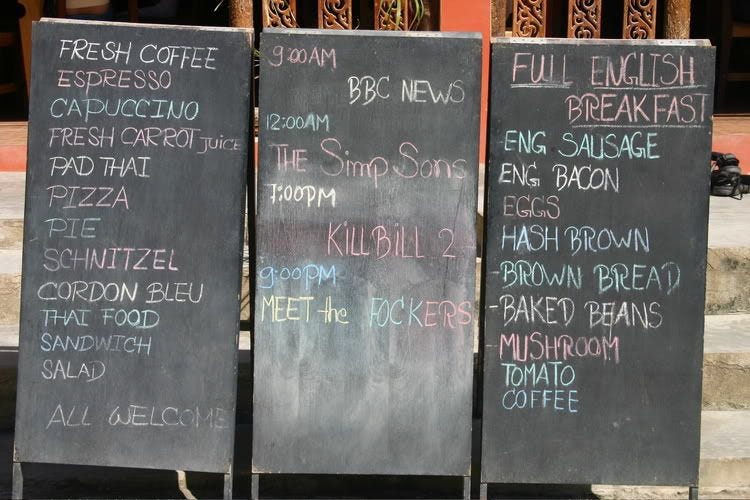 FRESH COFFEE
ESPRESSO
CAPUCCINO
FRESH CARROT JUICE
PAD THAI
PIZZA
PIE
SCHNITZEL
CORDON BLEU
THAI FOOD
SANDWICH
SALAD
ALL WELCOME
9:00AM
BBC NEWS
12:00AM
THE SimpSons
7:00PM
KILL BILL 2
9:00PM
MEET the FOCKERS
FULL ENGLISH
BREAKFAST
-ENG SAUSAGE
ENG BACON
EGGS
HASH BROWN
-BROWN BREAD
-BAKED BEANS
-MUSHROOM
TOMATO
COFFEE